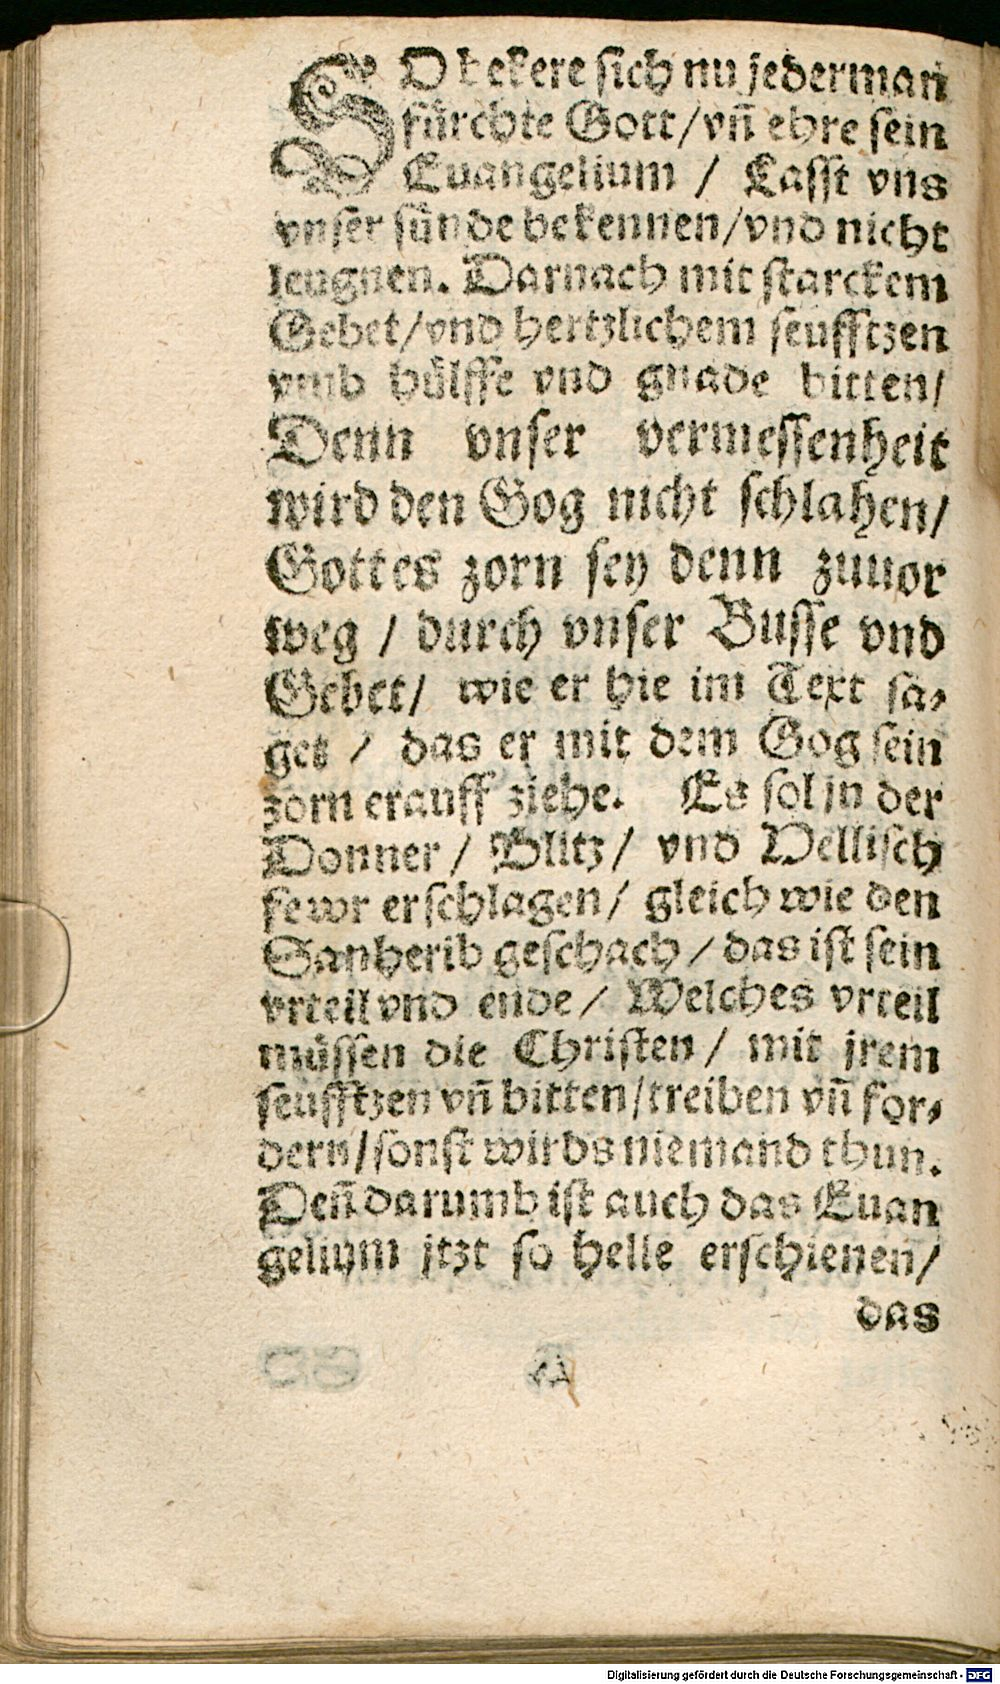 SO bekere sich nu jederman
fürchte Gott/vn̄ ehre sein
Euangelium / Lasst vns
vnser sünde bekennen/vnd nicht
leugnen. Darnach mit starckem
Gebet/vnd hertzlichem seufftzen
vmb hülffe vnd gnade bitten/
Denn vnser vermessenheit
wird den Gog nicht schlahen/
Gottes zorn sey denn zuuor
weg / durch vnser Busse vnd
Gebet/ wie er hie im Text sa⸗
get / das er mit dem Gog sein
zorn erauff ziehe. Es sol jn der
Donner/ Blitz/ vnd Hellisch
fewr erschlagen/ gleich wie den
Sanherib geschach/ das ist sein
vrteil vnd ende/ Welches vrteil
müssen die Christen/ mit jrem
seufftzen vn̄ bitten/treiben vn̄ for⸗
dern/sonst wirds niemand thun.
Den̄ darumb ist auch das Euan
gelium jtzt so helle erschienen/
das
Digitalisierung gefördert durch die Deutsche Forschungsgemeinschaft - DFG